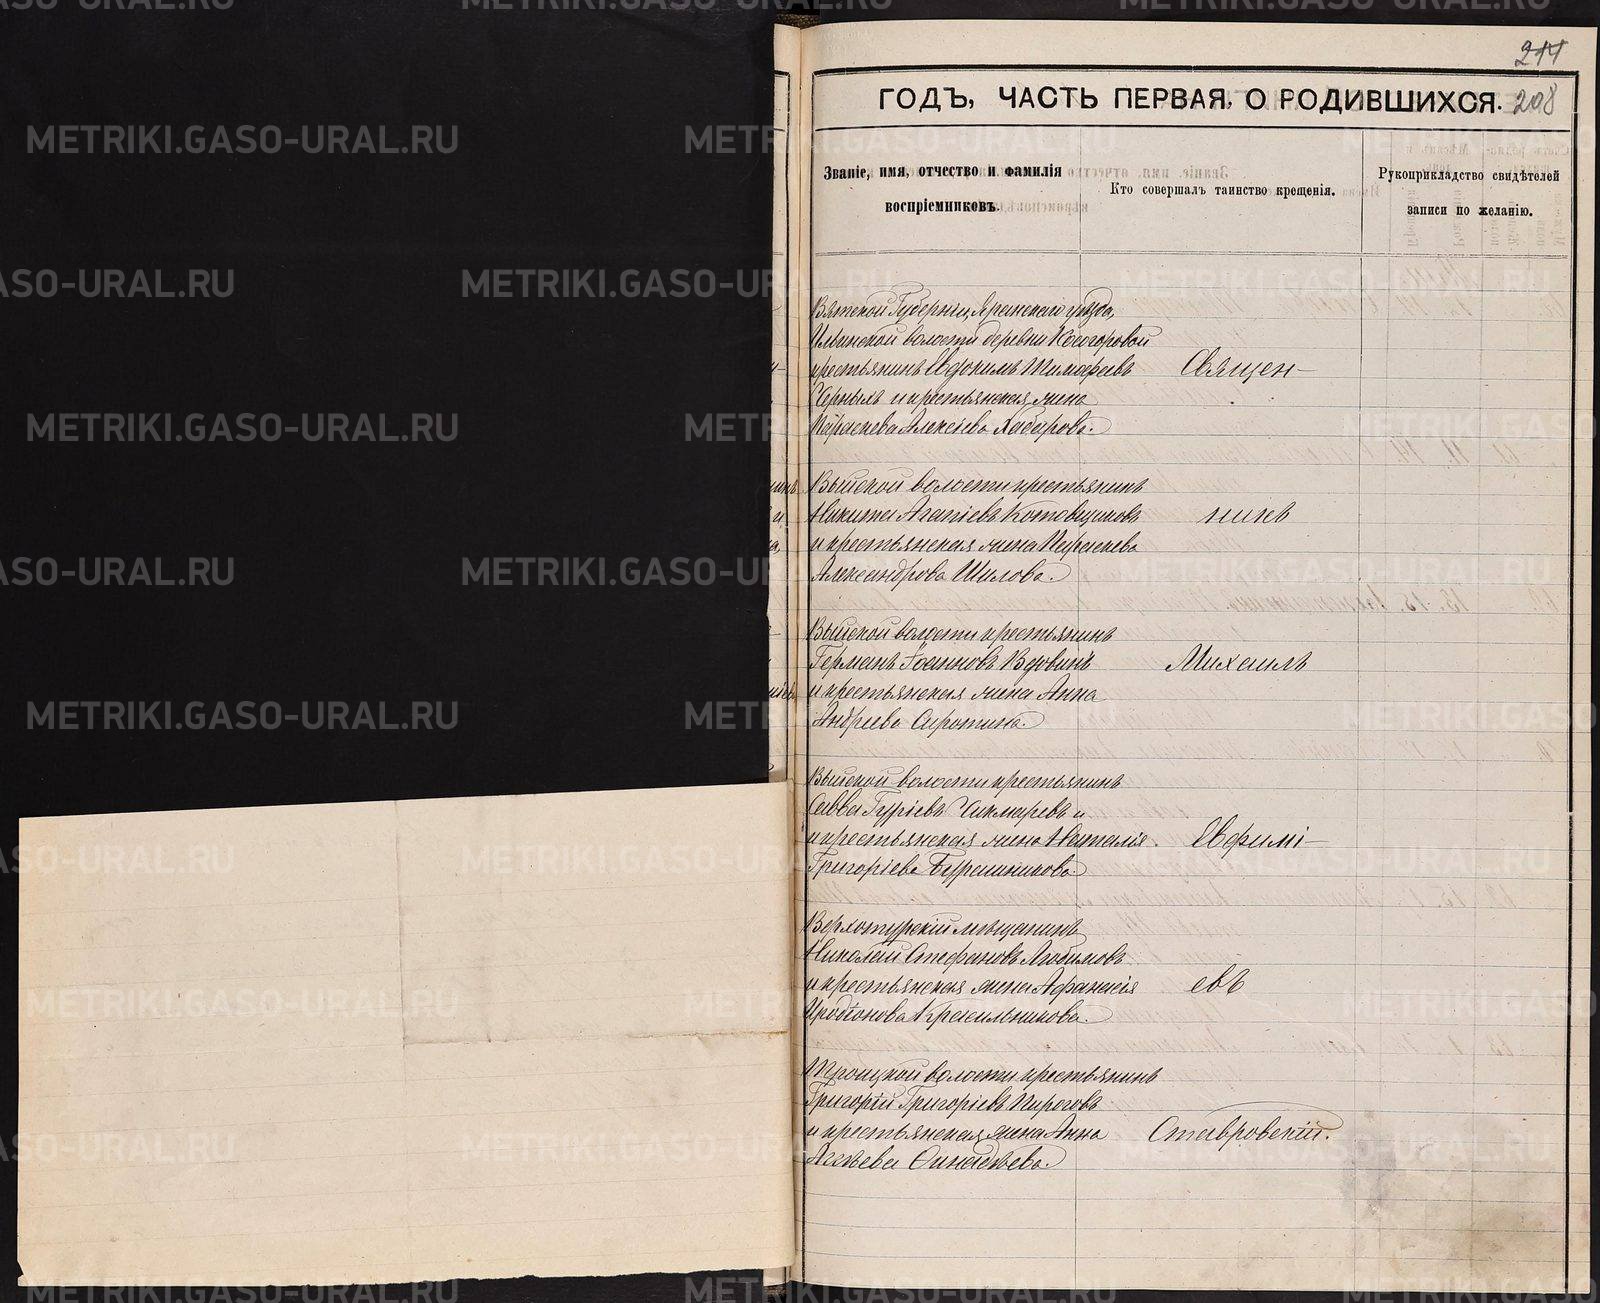 214
ГОДЪ, ЧАСТЬ ПЕРВАЯ, О РОДИВШИХСЯ. 208
Званіе, имя, отчество и фамилія
воспріемниковъ.
Кто совершалъ таинство крещенія.
Рукоприкладство свидѣтелей
записи по желанію.
Вятской Губерніи, Яранскаго уѣзда,
Ильинской волости деревни Косогоровой
крестьянинъ Евдокимъ Тимофеевъ
Черныхъ и крестьянская жена
Параскева Алексѣева Хабарова.
Выйской волости крестьянинъ
Никита Агапіевъ Котовщиковъ
и крестьянская жена Параскева
Александрова Шилова.
Выйской волости крестьянинъ
Германъ Іоанновъ Вдовинъ
и крестьянская жена Анна
Андреева Сиротина.
Выйской волости крестьянинъ
Савва Гуріевъ Чикмаревъ и
и крестьянская жена Наталія
Григоріева Бурашникова.
Верхотурскій мѣщанинъ
Николай Стефановъ Любимовъ
и крестьянская жена Афанасія
Иродіонова Красильникова.
Троицкой волости крестьянинъ
Григорій Григоріевъ Пироговъ
и крестьянская жена Анна
Аггѣева Синадѣева.
Священ-
никъ
Михаилъ
Евфимі-
евъ
Ставровскій.
METRIKI.GASO-URAL.RU